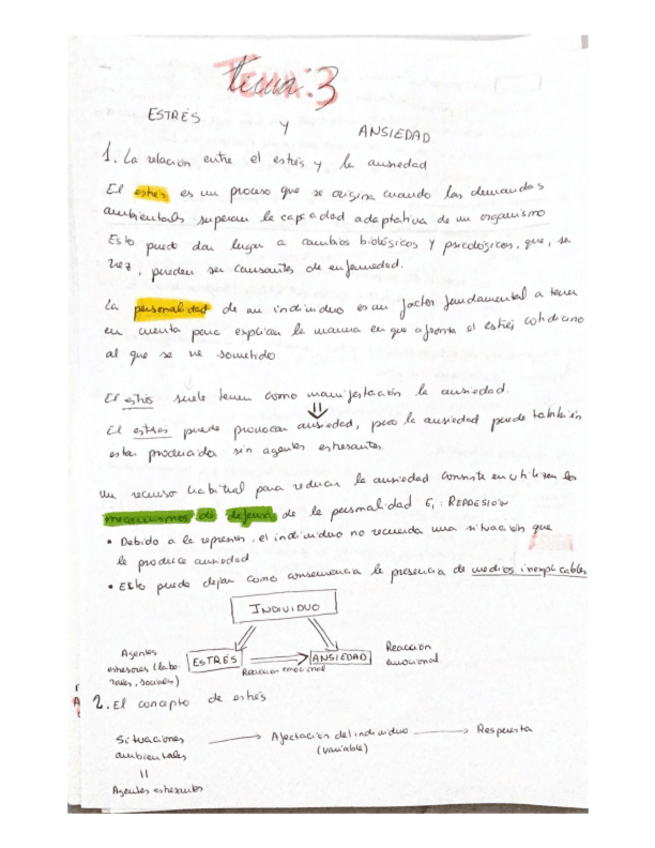 Tema: 3
ESTRÉS
Y
ANSIEDAD
1. La relación entre el estrés y la ansiedad
El estrés es un proceso que se origina cuando las demandas
ambientales superan la capacidad adaptativa de un organismo
Esto puede dar lugar a cambios biológicos y psicológicos, que, su
vez, pueden ser causantes de enfermedad.
La personalidad de un individuo es un factor fundamental a tener
en cuenta para explicar la manera en que afronta el estrés cotidiano
al que se ve sometido
El estrés suele tener como manifestación la ansiedad.
⇓
El estrés puede provocar ansiedad, pero la ansiedad puede también
estar producida sin agentes estresantes.
Un recurso habitual para reducir la ansiedad consiste en utilizar los
mecanismos de defensa de la personalidad Ej: REPRESIÓN
• Debido a la represión, el individuo no recuerda una situación que
le produce ansiedad
• Esto puede dejar como consecuencia la presencia de medios inexplicables
INDIVIDUO
Agentes
estresores (labo-
rales, sociales)
ESTRÉS
Reacción emocional
ANSIEDAD
Reacción
emocional
2. El concepto de estrés
Situaciones
ambientales
Afectación del individuo
(variable)
Respuesta
Agentes estresantes